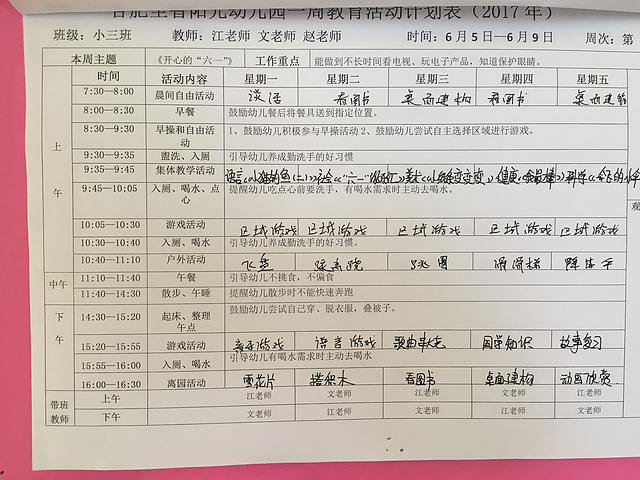 阳光幼儿园一周教育活动计划表（2017年）
班级：小三班 教师：江老师 文老师 赵老师 时间：6月5日—6月9日 周次：第
本周主题 《开心的“六一”》 工作重点 能做到不长时间看电视、玩电子产品，知道保护眼睛。
时间 活动内容 星期一 星期二 星期三 星期四 星期五
7:30—8:00 晨间自由活动 谈话 看图书 桌面建构 看图书 桌面建构
8:00—8:30 早餐 鼓励幼儿餐后将餐具送到指定位置。
上午
8:30—9:30 早操和自由活动 1、鼓励幼儿积极参与早操活动 2、鼓励幼儿尝试自主选择区域进行游戏。
9:30—9:35 盥洗、入厕 引导幼儿养成勤洗手的好习惯
9:35—9:45 集体教学活动 语言《小猫钓鱼（二）》社会《“六一” 美术 变变变》健康 科学
9:45—10:05 入厕、喝水、点心 提醒幼儿吃点心前要洗手，有喝水需求时主动去喝水。
观
10:05—10:30 游戏活动 区域游戏 区域游戏 区域游戏 区域游戏 区域游戏
10:30—10:40 入厕、喝水 引导幼儿养成勤洗手的好习惯。
10:40—11:10 户外活动 飞盘 滑滑梯
中午 11:10—11:40 午餐 引导幼儿不挑食，不偏食
11:40—14:30 散步、午睡 提醒幼儿散步时不能快速奔跑
下午
14:30—15:20 起床、整理 午点 鼓励幼儿尝试自己穿、脱衣服，叠被子。
15:20—15:55 游戏活动 亲子游戏 语言游戏 歌曲串烧 国学知识 故事复习
15:55—16:00 入厕、喝水 引导幼儿有喝水需求时主动去喝水
16:00—16:30 离园活动 雪花片 搭积木 看图书 桌面建构 动画欣赏
带班教师 上午 江老师 文老师 江老师 文老师 江老师
下午 文老师 江老师 文老师 江老师 文老师